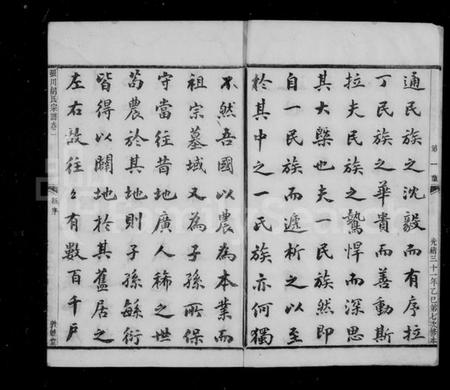 通民族之沈毅而有序拉
丁民族之華貴而善動斯
拉夫民族之驁悍而深思
其大槩也夫一民族然即
自一民族而遞析之以至
於其中之一民族亦何獨
不然吾國以農為本業而
祖宗墓域又為子孫所保
守當往昔地廣人稀之世
苟農於其地則子孫蘇衍
皆得以闢地於其舊居之
左右故往々有數百千戶
第一集
光緒三十一年乙巳第七次修本
氏宗譜卷一